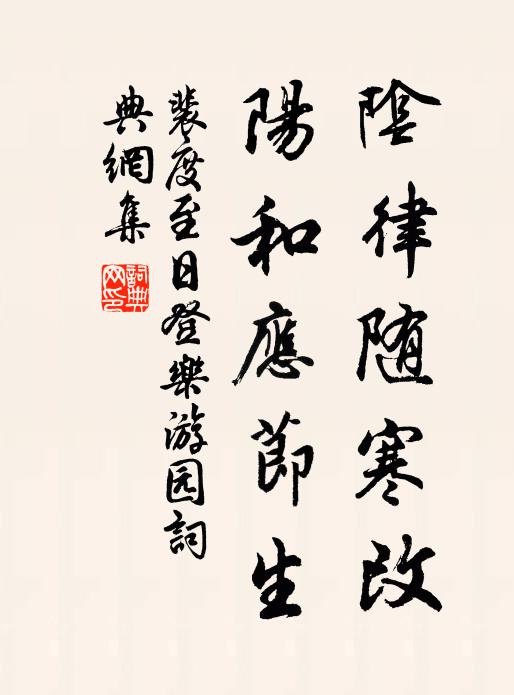 陰律随寒改
陽和應節生
裴度至日登樂游园詞
典網集
詞典网印